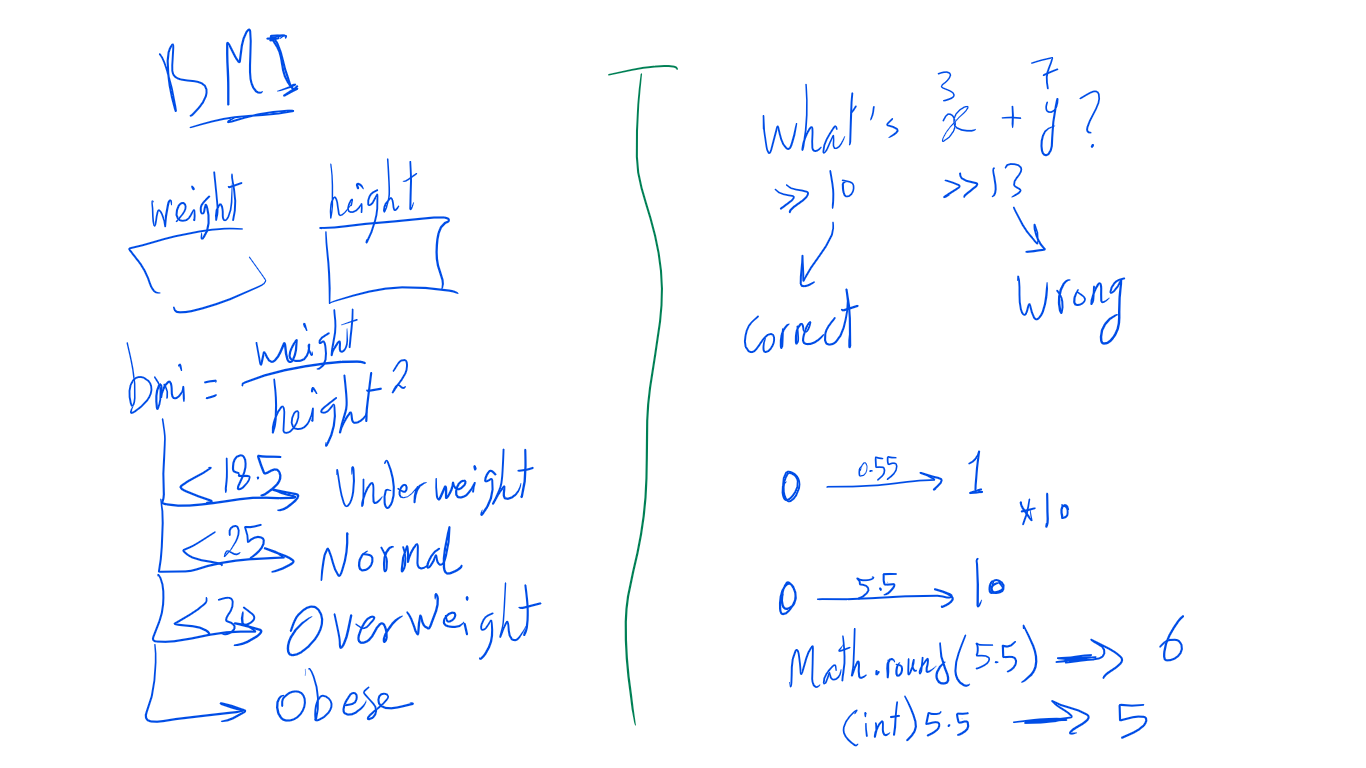 BMI
weight height
bmi = weight / height²
<18.5 Underweight
<25 Normal
<30 Overweight
Obese
3 7
What's x + y?
>> 10 >> 13
Correct Wrong
0 0.55 1
*10
0 5.5 10
Math.round(5.5) → 6
(int)5.5 → 5